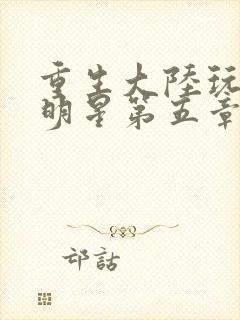 重生大陸玩
明星第五章
邙話